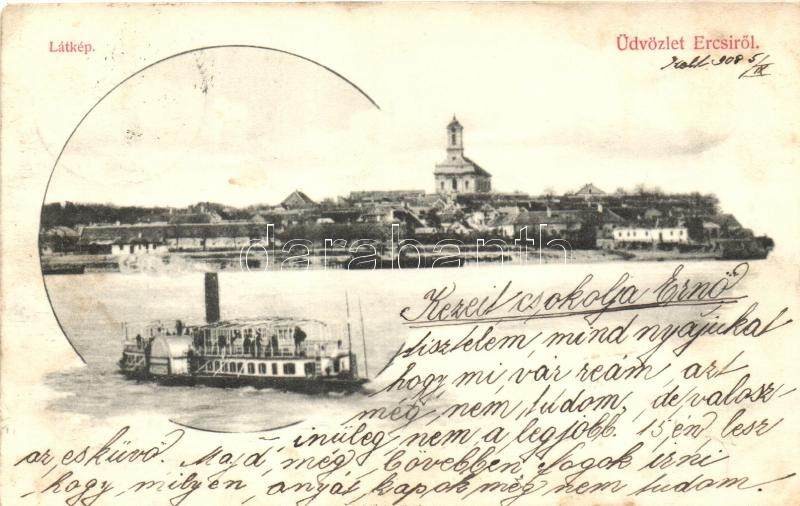 Látkép.
Üdvözlet Ercsiről.
Kelt. 908 5/IX
darabanth
Kezeit csokolja Ernő
tisztelem, mind nyájukat
hogy mi vár reám, azt
még nem tudom, de valosz-
inüleg nem a legjobb. 15én lesz
az esküvő. Majd még bővebben fogok irni
hogy milyen anyát kapok még nem tudom.